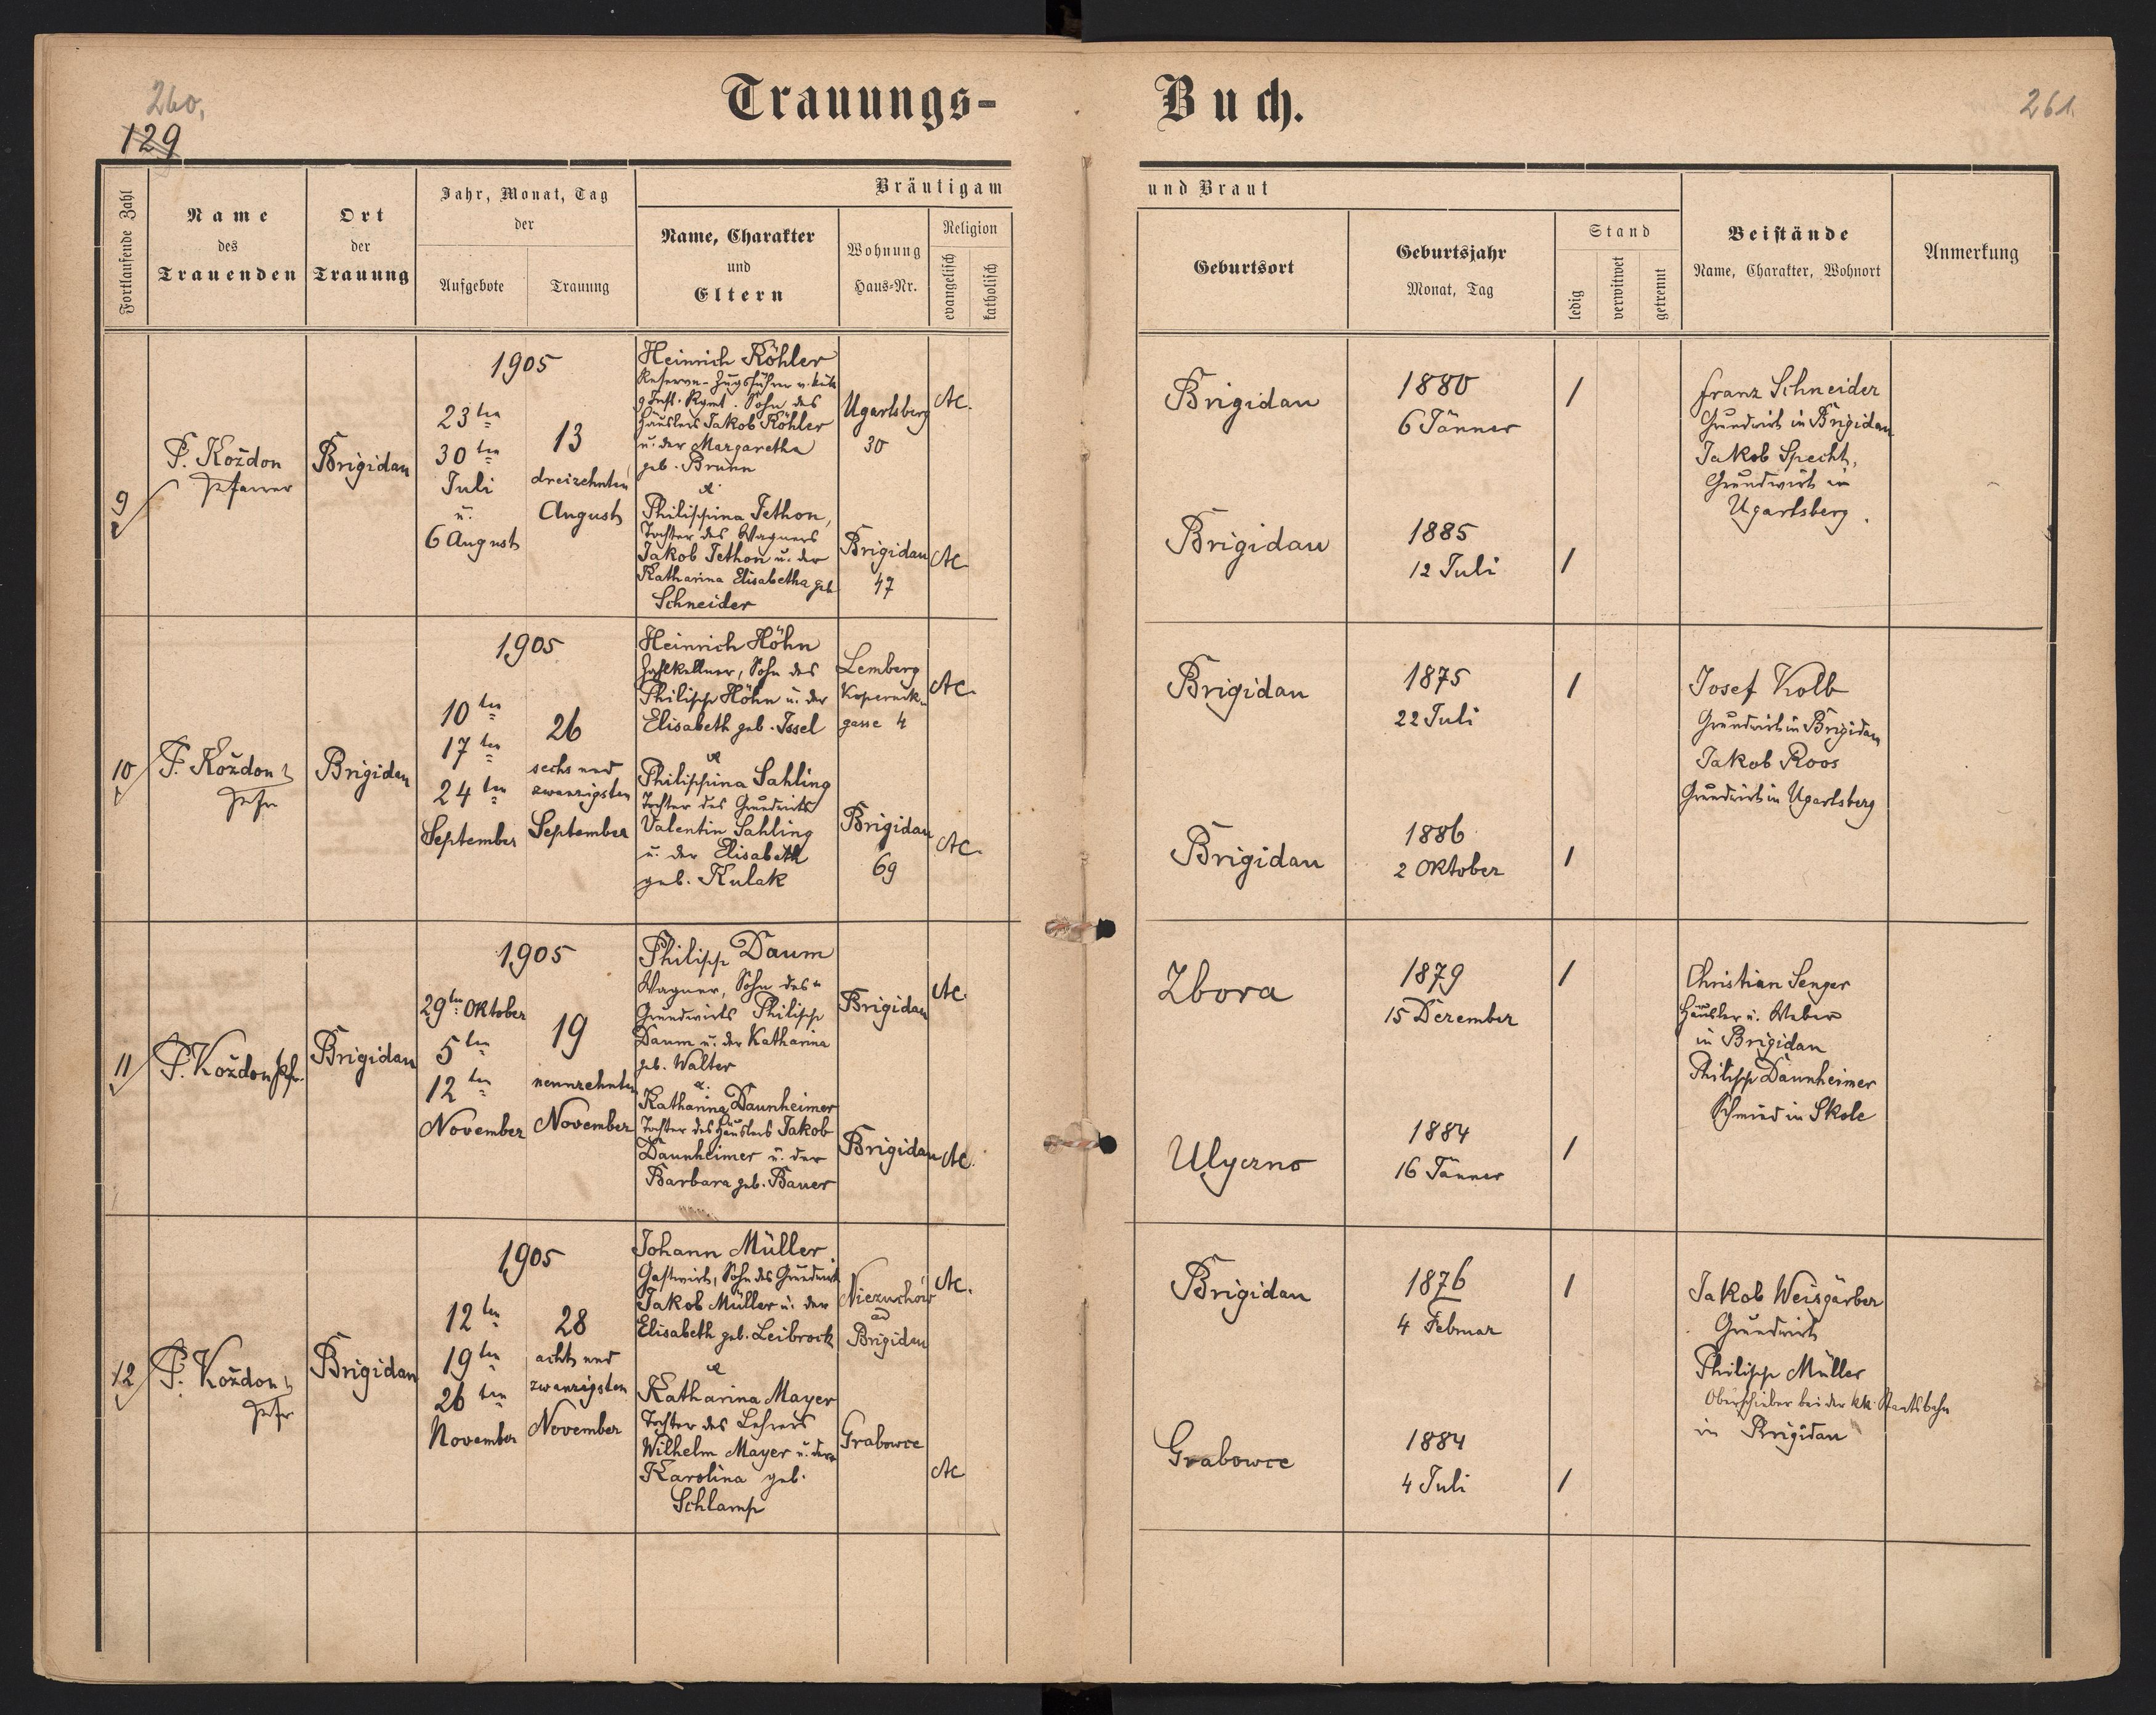 260.
129
Trauungs-
Buch.
261.
Fortlaufende Zahl
Name
des
Trauenden
Ort
der
Trauung
Jahr, Monat, Tag
der
Aufgebote
Trauung
Bräutigam
Name, Charakter
und
Eltern
Wohnung
Haus-Nr.
Religion
evangelisch
katholisch
und Braut
Geburtsort
Geburtsjahr
Monat, Tag
Stand
ledig
verwitwet
getrennt
Beistände
Name, Charakter, Wohnort
Anmerkung
9
P. Koždon
Pfarrer
Brigidau
1905
23ten
30ten
Juli
u.
6 August
13
dreizehnten
August
Heinrich Köhler
Reserve-Zugsführer
9 Inft. Rgmt. Sohn des
Häuslers Jakob Köhler
u. der Margaretha
geb. Brunn
&
Philippina Jethon,
Tochter des Wagners
Jakob Jethon u. der
Katharina Elisabetha geb
Schneider
Ugartsberg
30
Brigidau
47
AC.
AC
Brigidau
1880
6 Jänner
/
Brigidau
1885
12 Juli
/
Franz Schneider
Grundwirt in Brigidau
Jakob Specht,
Grundwirt in
Ugartsberg.
10
P. Koždon
Pfr
Brigidau
1905
10ten
17ten
24ten
September
26
sechs und
zwanzigsten
September
Heinrich Höhn
Zahlkellner, Sohn des
Philipp Höhn u. der
Elisabeth geb. Issel
&
Philippina Sahling
Tochter des Grundwirts
Valentin Sahling
u. der Elisabeth
geb. Kulak
Lemberg
Kopernik-
gasse 4
Brigidau
69
AC.
AC.
Brigidau
1875
22 Juli
/
Brigidau
1886
2 Oktober
/
Josef Kolb
Grundwirt in Brigidau
Jakob Roos
Grundwirt in Ugartsberg
11
P. Koždon Pfr.
Brigidau
1905
29ten Oktober
5ten
12ten
November
19
neunzehnten
November
Philipp Daum
Wagner, Sohn des
Grundwirts Philipp
Daum u. der Katharina
geb. Walter
&
Katharina Daunheimer
Tochter des Häuslers Jakob
Daunheimer u. der
Barbara geb. Bauer
Brigidau
Brigidau
AC.
AC.
Zbora
1879
15 Dezember
/
Ulyczno
1884
16 Jänner
/
Christian Senger
Häusler u. Weber
in Brigidau
Philipp Daunheimer
Schmied in Skole
12
P. Koždon
Pfr
Brigidau
1905
12ten
19ten
26ten
November
28
acht und
zwanzigsten
November
Johann Müller
Gastwirt, Sohn des Grundwirts
Jakob Müller u. der
Elisabeth geb. Leibrock
&
Katharina Mayer
Tochter des Lehrers
Wilhelm Mayer u. der
Karolina geb.
Schlamp
Niezuchów
ad
Brigidau
Grabowce
AC.
AC
Brigidau
1876
4 Februar
/
Grabowce
1884
4 Juli
/
Jakob Weisgärber
Grundwirt
Philipp Müller
Oberschieber bei der kk. Staatsbahn
in Brigidau